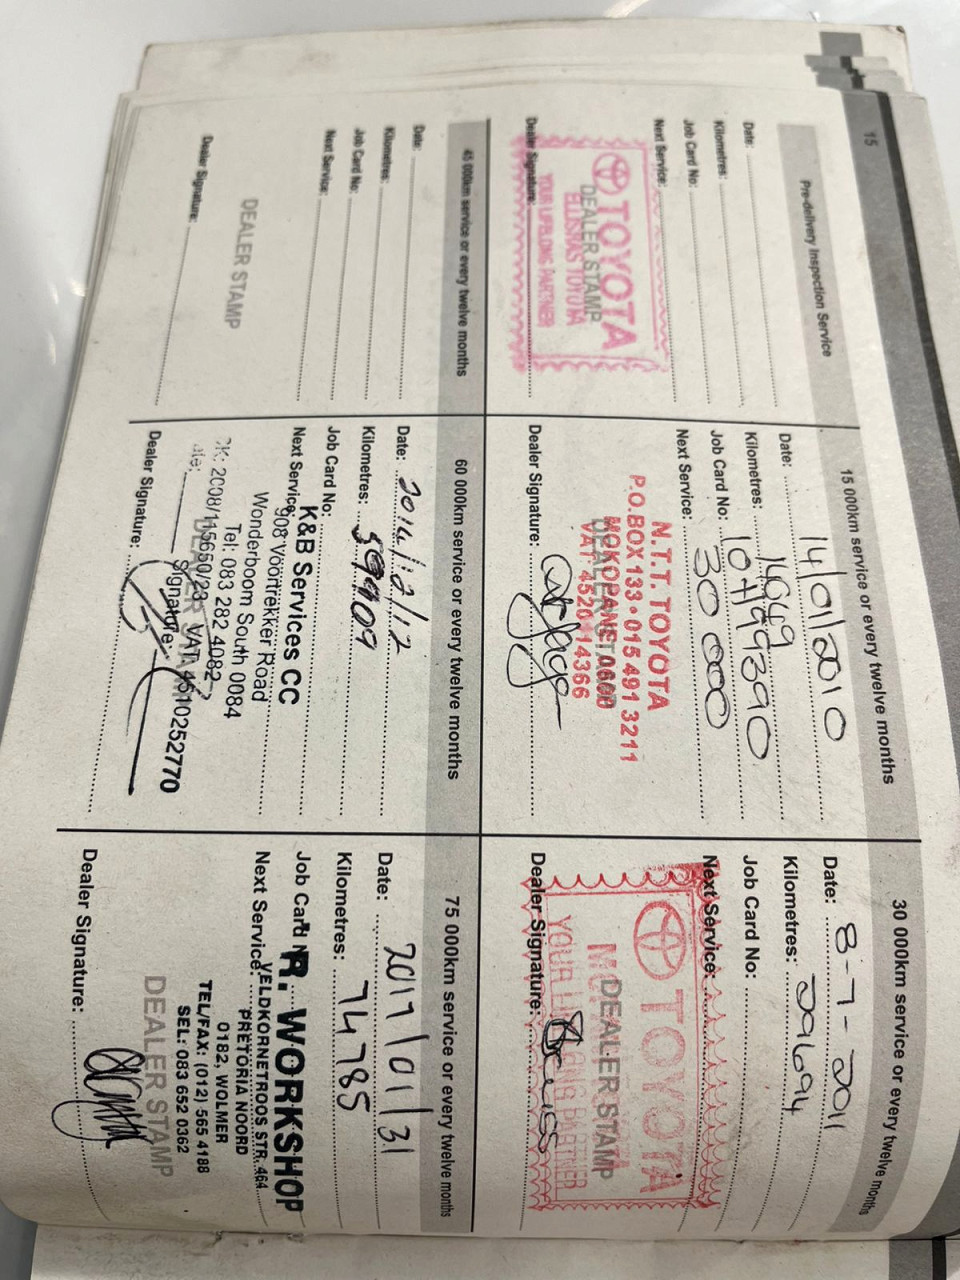 15
Pre-delivery Inspection Service
Date:
Kilometres:
Job Card No:
Next Service:
TOYOTA
DEALER STAMP
ELLISRAS TOYOTA
YOUR LIFELONG PARTNER
Dealer Signature:
15 000km service or every twelve months
Date: 14/01/2010
Kilometres: 14649
Job Card No:
Next Service: 30 000
N.T.T. TOYOTA
P.O.BOX 133 • 015 491 3211
DEALER STAMP
MOKOPANE 0600
Dealer Signature:
30 000km service or every twelve months
Date: 8-7-2011
Kilometres: 29694
Job Card No:
Next Service:
TOYOTA
DEALER STAMP
YOUR LIFELONG PARTNER
Dealer Signature:
45 000km service or every twelve months
Date:
Kilometres:
Job Card No:
Next Service:
DEALER STAMP
Dealer Signature:
60 000km service or every twelve months
Date: 2014/12/12
Kilometres:
Job Card No:
Next Service:
K&B Services CC
908 Voortrekker Road
Wonderboom South 0084
Tel: 083 282 4082
CK: 2008/115650/23 VAT 4510252770
DEALER STAMP
Date: Signature:
Dealer Signature:
75 000km service or every twelve months
Date: 2017/01/31
Kilometres: 74785
Job Card N
R. WORKSHOP
Next Service:
VELDKORNETROOS STR. 464
PRETORIA NOORD
0182, WOLMER
TEL/FAX: (012) 565 4188
SEL: 083 652 0362
DEALER STAMP
Dealer Signature: